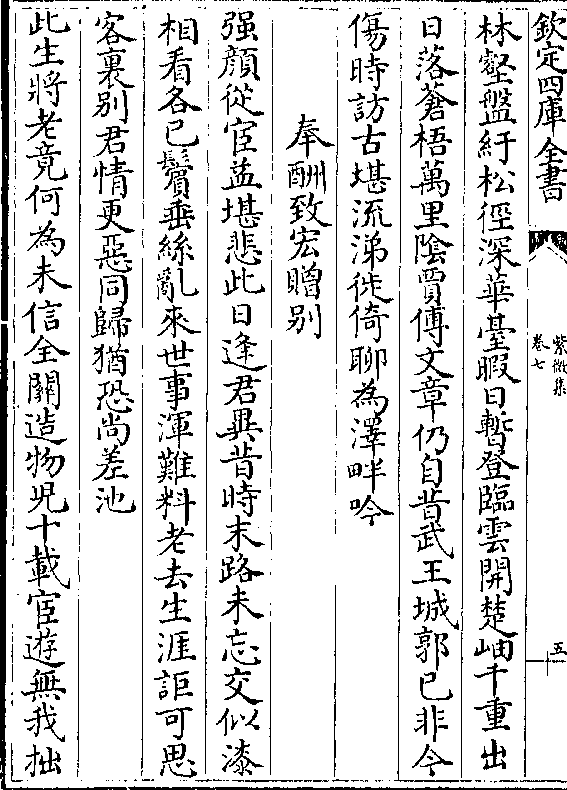 欽定四庫全書
紫微集
卷七
五
林壑盤紆松徑深華臺暇日暫登臨雲開楚岫千重出
日落蒼梧萬里陰賈傅文章仍自昔武王城郭已非今
傷時訪古堪流涕徙倚聊為澤畔吟
奉酬致宏贈别
强顔從宦益堪悲此日逢君異昔時末路未忘交似漆
相看各已鬢垂絲亂來世事渾難料老去生涯詎可思
客裏别君情更惡同歸猶恐尚差池
此生將老竟何為未信全關造物兒十載宦遊無我拙